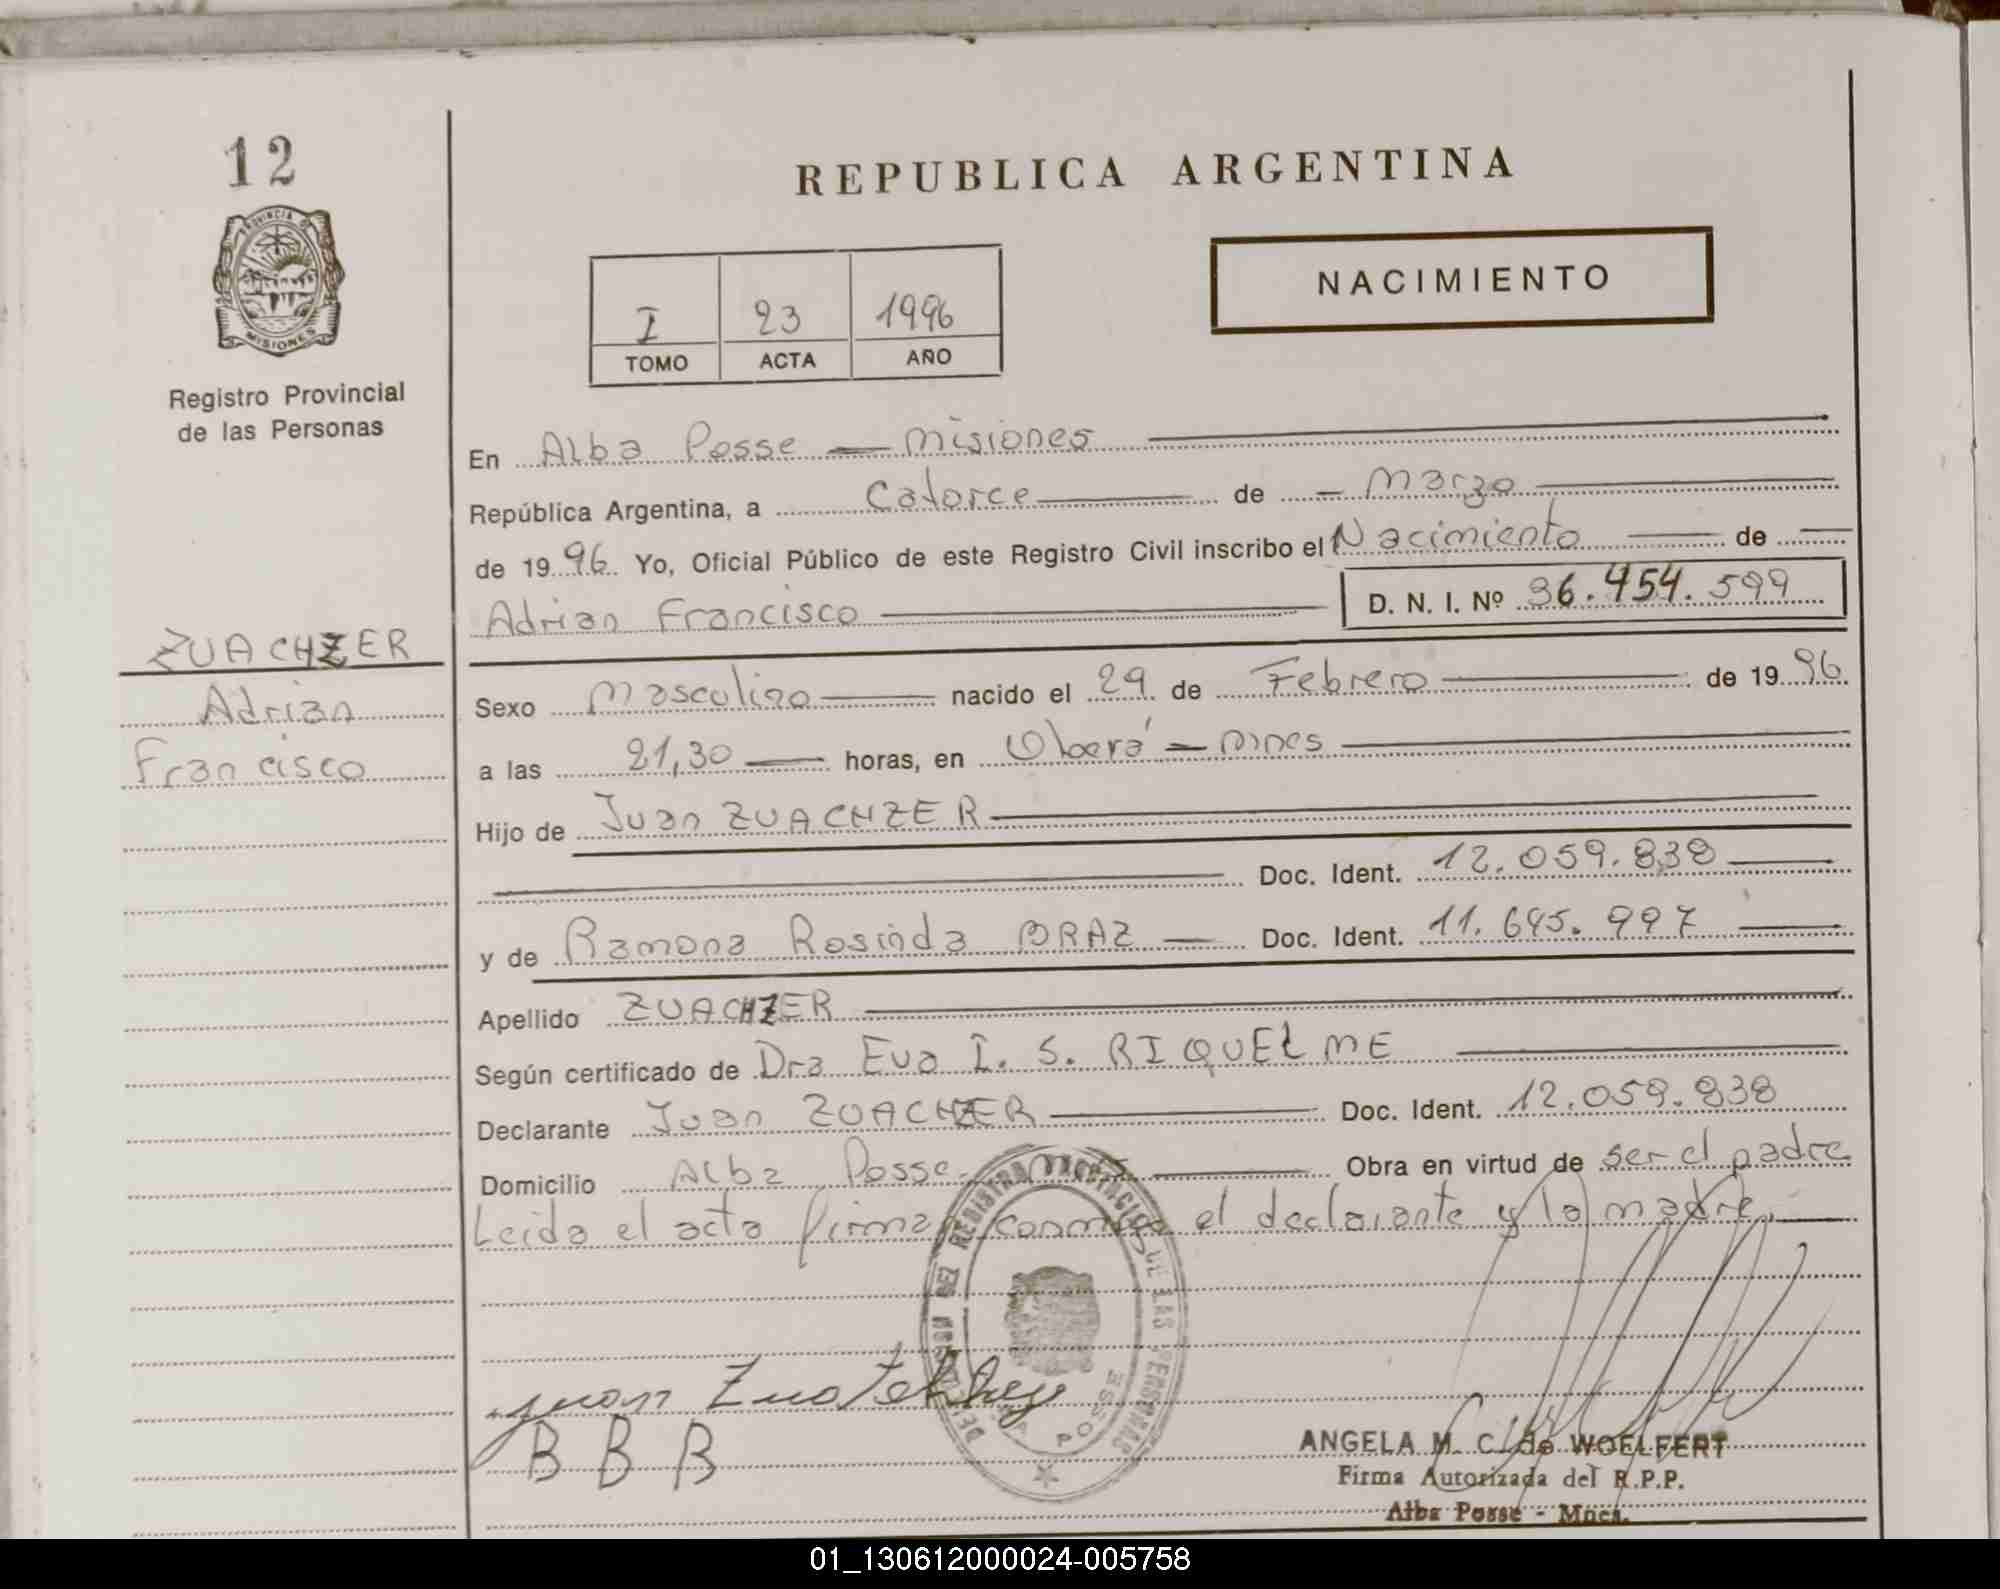 12
REPUBLICA ARGENTINA
PROVINCIA DE
MISIONES
NACIMIENTO
I 23 1996
TOMO ACTA AÑO
Registro Provincial
de las Personas
En Alba Posse — Misiones
República Argentina, a Catorce de — Marzo
de 1996 Yo, Oficial Público de este Registro Civil inscribo el Nacimiento de
Adrian Francisco D. N. I. Nº 36.454.599
ZUACHZER
Adrian
Francisco
Sexo Masculino nacido el 29 de Febrero de 1996
a las 21,30 horas, en Oberá — Mnes
Hijo de Juan ZUACHZER
Doc. Ident. 12.059.838
y de Ramona Rosinda BRAZ — Doc. Ident. 11.645.997
Apellido ZUACHZER
Según certificado de Dra Eva I. S. RIQUELME
Declarante Juan ZUACHZER Doc. Ident. 12.059.838
Domicilio Alba Posse Obra en virtud de ser el padre
Leida el acta firman conmigo el declarante y la madre.
REGISTRO PROVINCIAL DE LAS PERSONAS
POSSE
Juan
B B B
ANGELA M. C. de WOELFERT
Firma Autorizada del R.P.P.
Alba Posse - Mnes.
01_130612000024-005758